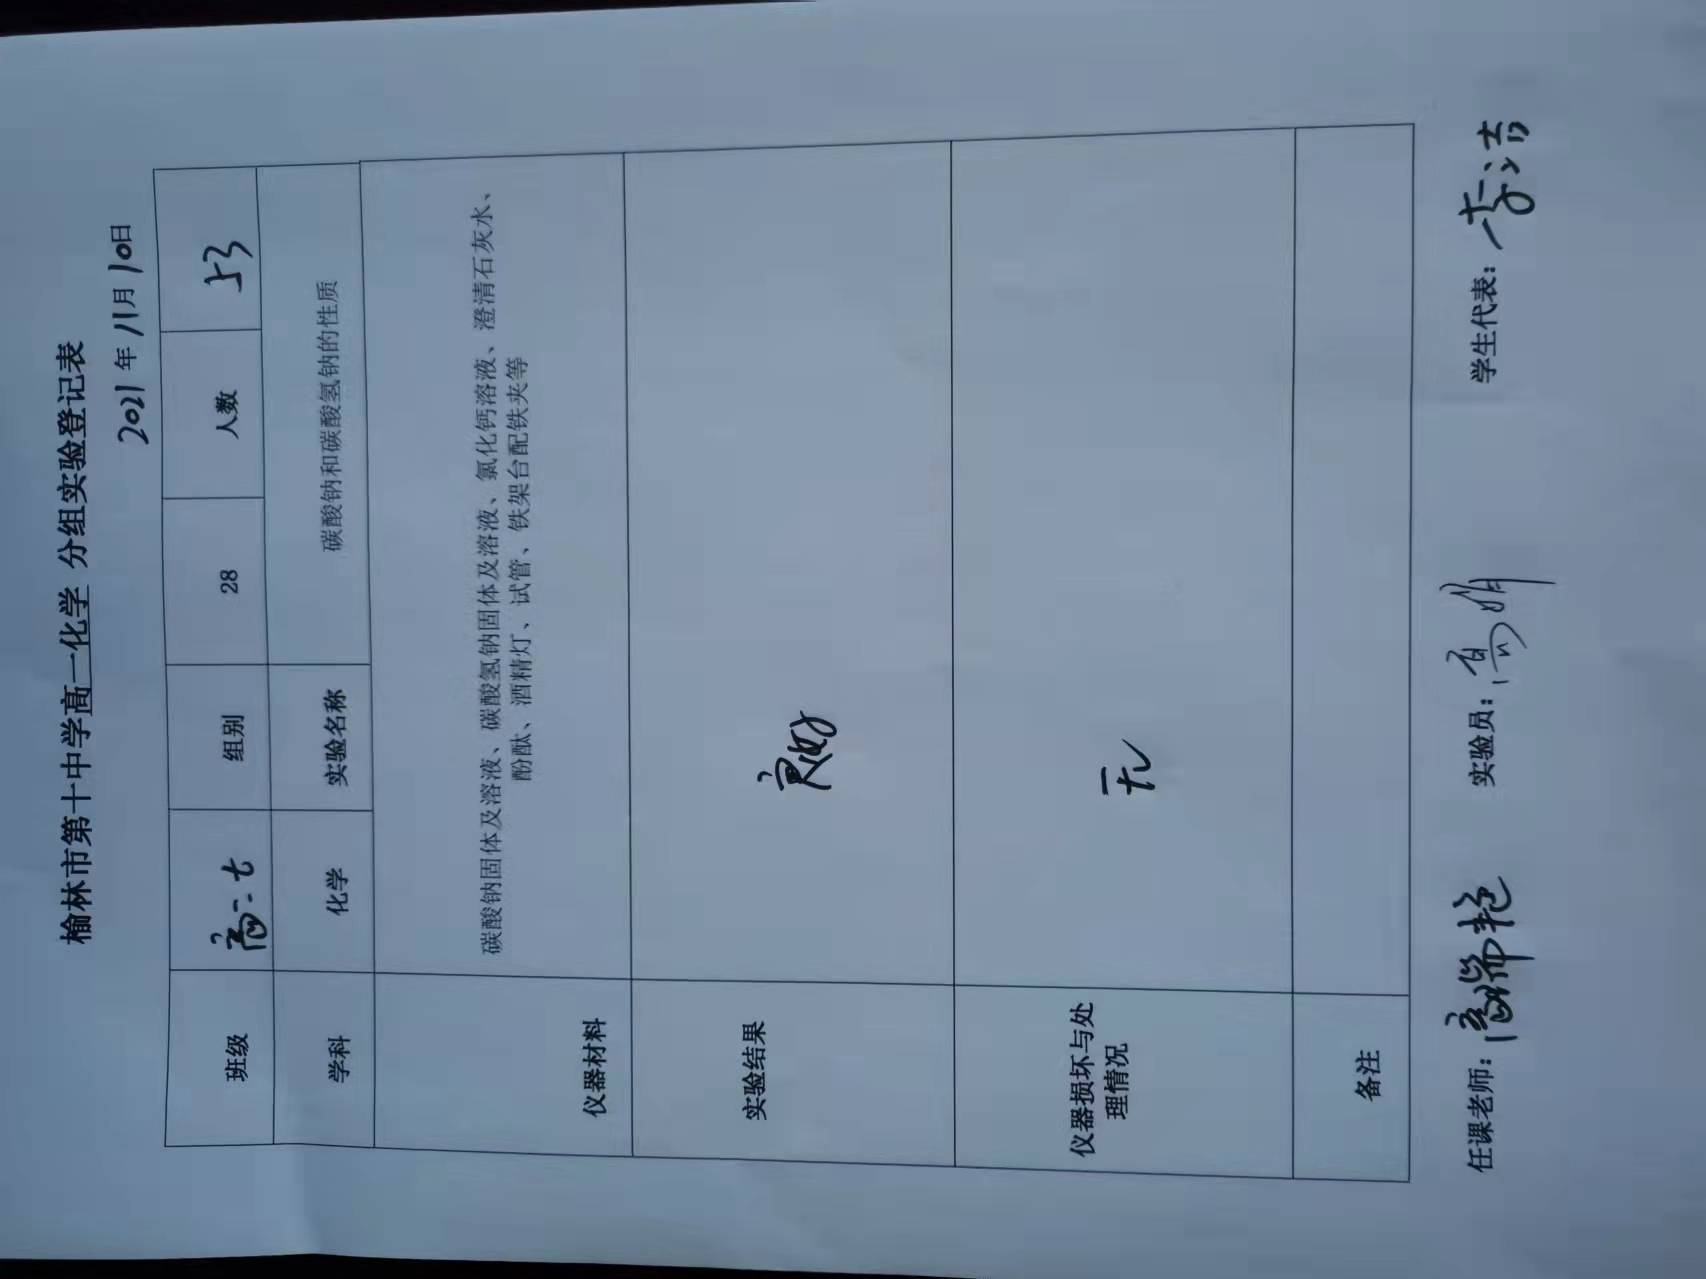 榆林市第十中学高一化学 分组实验登记表
2021年11月10日
班级 组别 28 人数 53
学科 化学 实验名称 碳酸钠和碳酸氢钠的性质
仪器材料 碳酸钠固体及溶液、碳酸氢钠固体及溶液、氯化钙溶液、澄清石灰水、
酚酞、酒精灯、试管、铁架台配铁夹等
实验结果 良好
仪器损坏与处
理情况 无
备注
任课老师：高瑞艳 实验员：高娟 学生代表：李洁